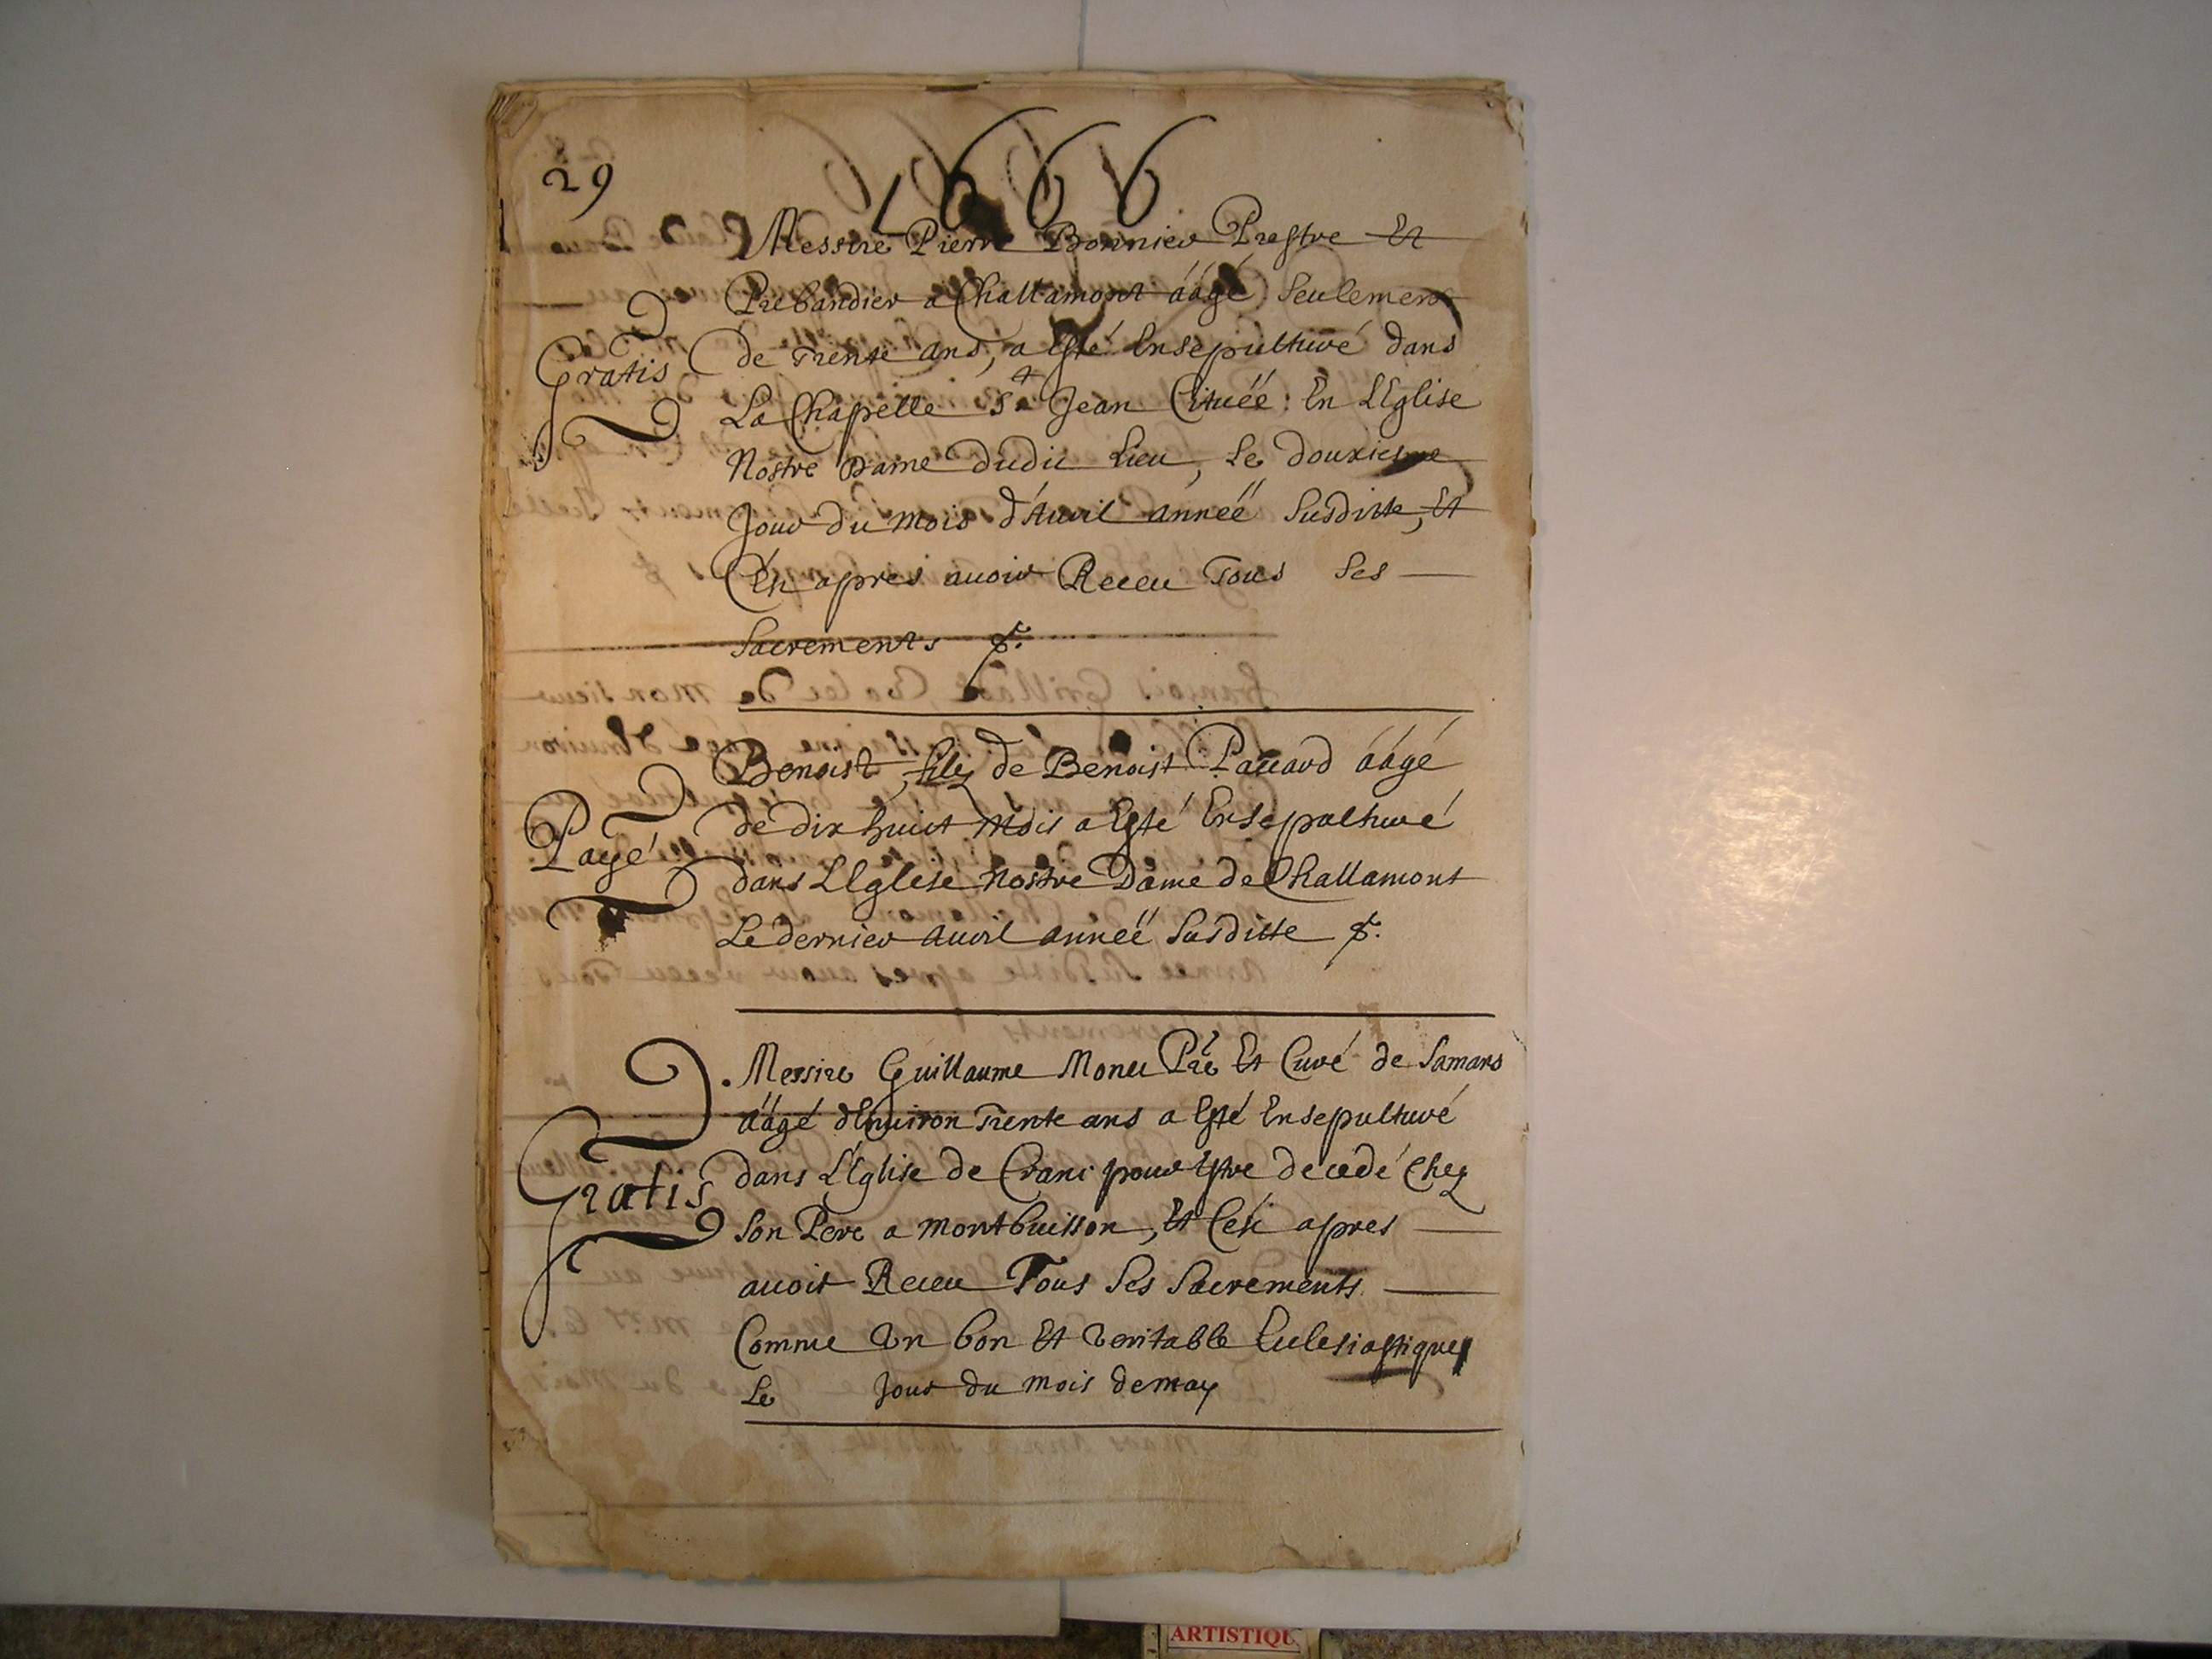 29
1666
Messire Pierre Bonnier Prestre Et
Prebandier a Challamont áágé Seulement
Gratis
de Trente ans, a Esté Ensepulturé dans
La Chapelle St Jean Cituéé En LEglise
Nostre Dame dudit Lieu, Le douxiesme
Jour du mois d'Auril annéé Susditte, Et
Cesi apres auoir Receu Tous Ses
Sacrements &.
Benoist, filz de Benoist Pauard áágé
Payé
de dix huict Mois a Esté Ensepulturé
dans LEglise Nostre Dame de Challamont
Le dernier auril annéé Susditte &.
Messire Guillaume Monet Pre Et Curé de Samans
áágé dEnuiron Trente ans a Esté Ensepulturé
Gratis
dans L'Eglise de Crani pour Estre decedé Chez
Son Pere a montbuisson, Et Cesi apres
auoir Receu Tous Ses Sacrements
Comme Un bon Et Veritable Eclesiastique
Le Jour du mois de may
ARTISTIQU